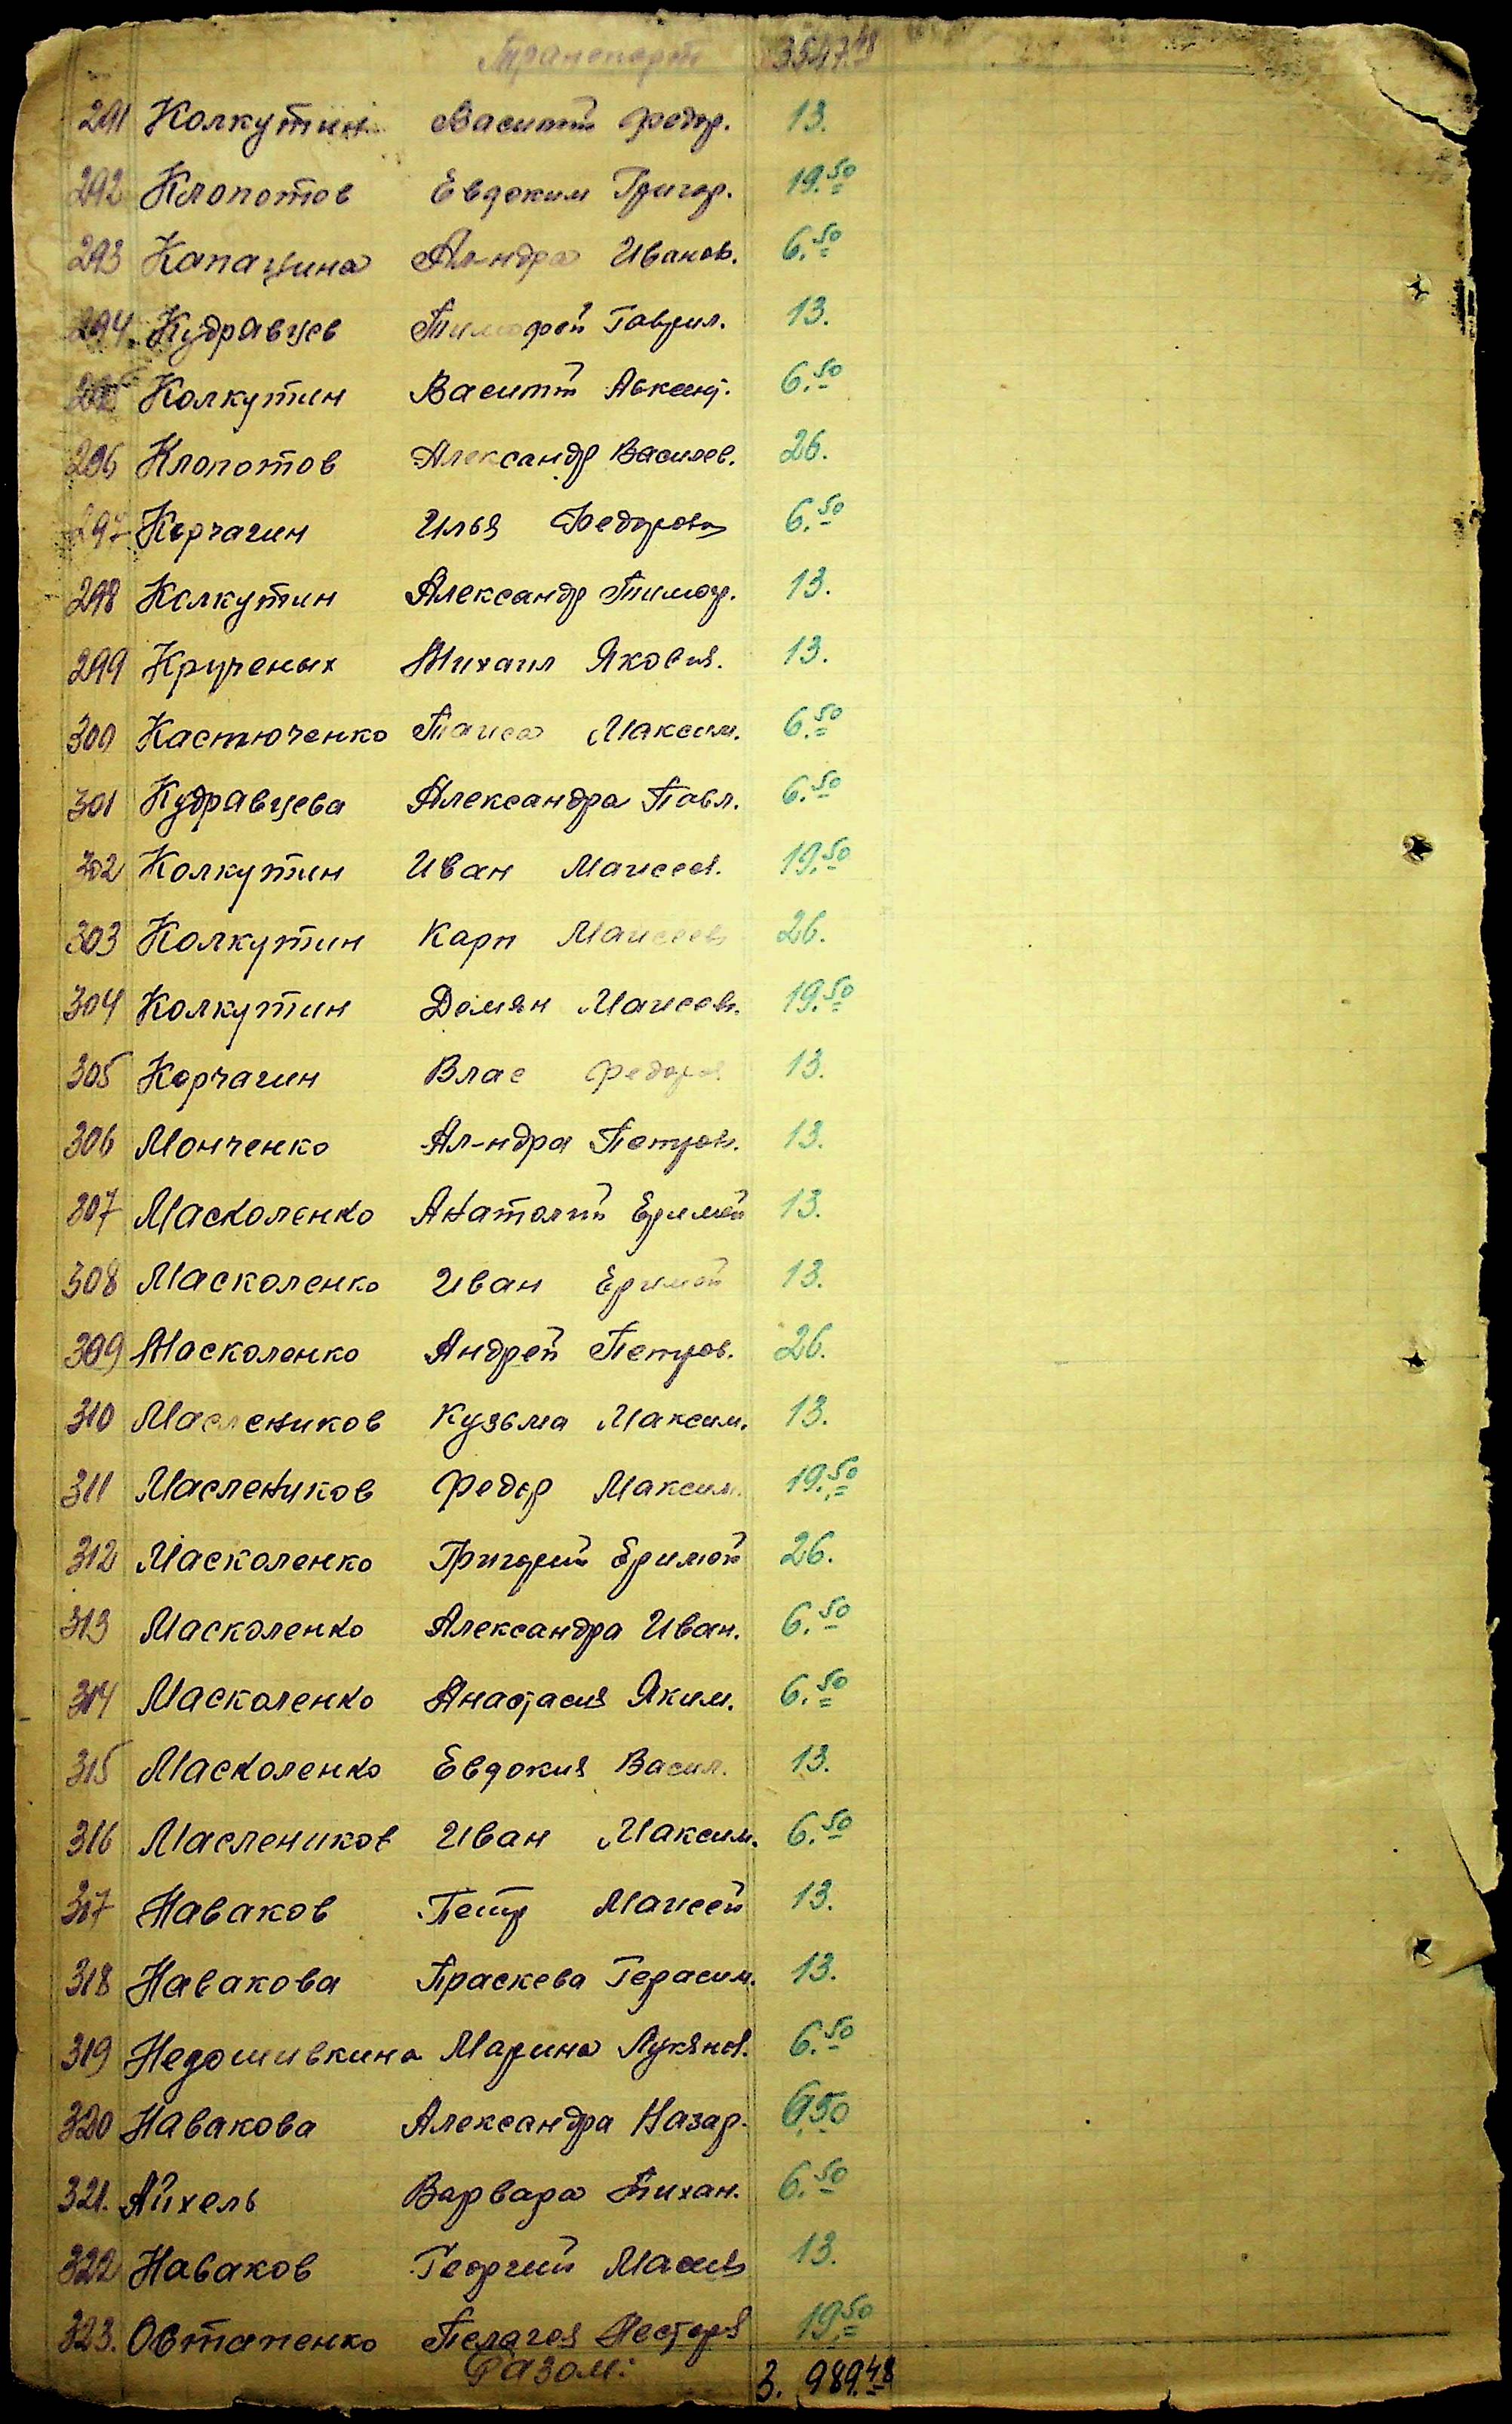 Транспорт 3547.48
291 Колкутин Василий Федор. 13.
292 Клопотов Евдоким Григор. 19.50
293 Капацина Ал-ндра Иванов. 6.50
294 Кудравцев Тимофей Гаврил. 13.
295 Колкутин Василий Авксент. 6.50
296 Клопотов Александр Василев. 26.
297 Корчагин Илья Федоров 6.50
298 Колкутин Александр Тимоф. 13.
299 Крученых Михаил Яковл. 13.
300 Кастюченко Таиса Максим. 6.50
301 Кудравцева Александра Павл. 6.50
302 Колкутин Иван Маисеев. 19.50
303 Колкутин Карп Маисеев 26.
304 Колкутин Демян Маисеев. 19.50
305 Корчагин Влас Федоров 13.
306 Монченко Ал-ндра Петров. 13.
307 Масколенко Анатолий Еримей 13.
308 Масколенко Иван Еримей 13.
309 Масколенко Андрей Петров. 26.
310 Маслеников Кузьма Максим. 13.
311 Маслеников Федор Максим. 19.50
312 Масколенко Григорий Еримей 26.
313 Масколенко Александра Иван. 6.50
314 Масколенко Анастасия Яким. 6.50
315 Масколенко Евдокия Васил. 13.
316 Маслеников Иван Максим. 6.50
317 Наваков Петр Маисей 13.
318 Навакова Праскева Герасим. 13.
319 Недошивкина Марина Лукянов. 6.50
320 Навакова Александра Назар. 6.50
321. Айхель Варвара Тихан. 6.50
322 Наваков Георгий 13.
323. Овтапенко Пелагея Нестеров 19.50
Разом: 3.989.48